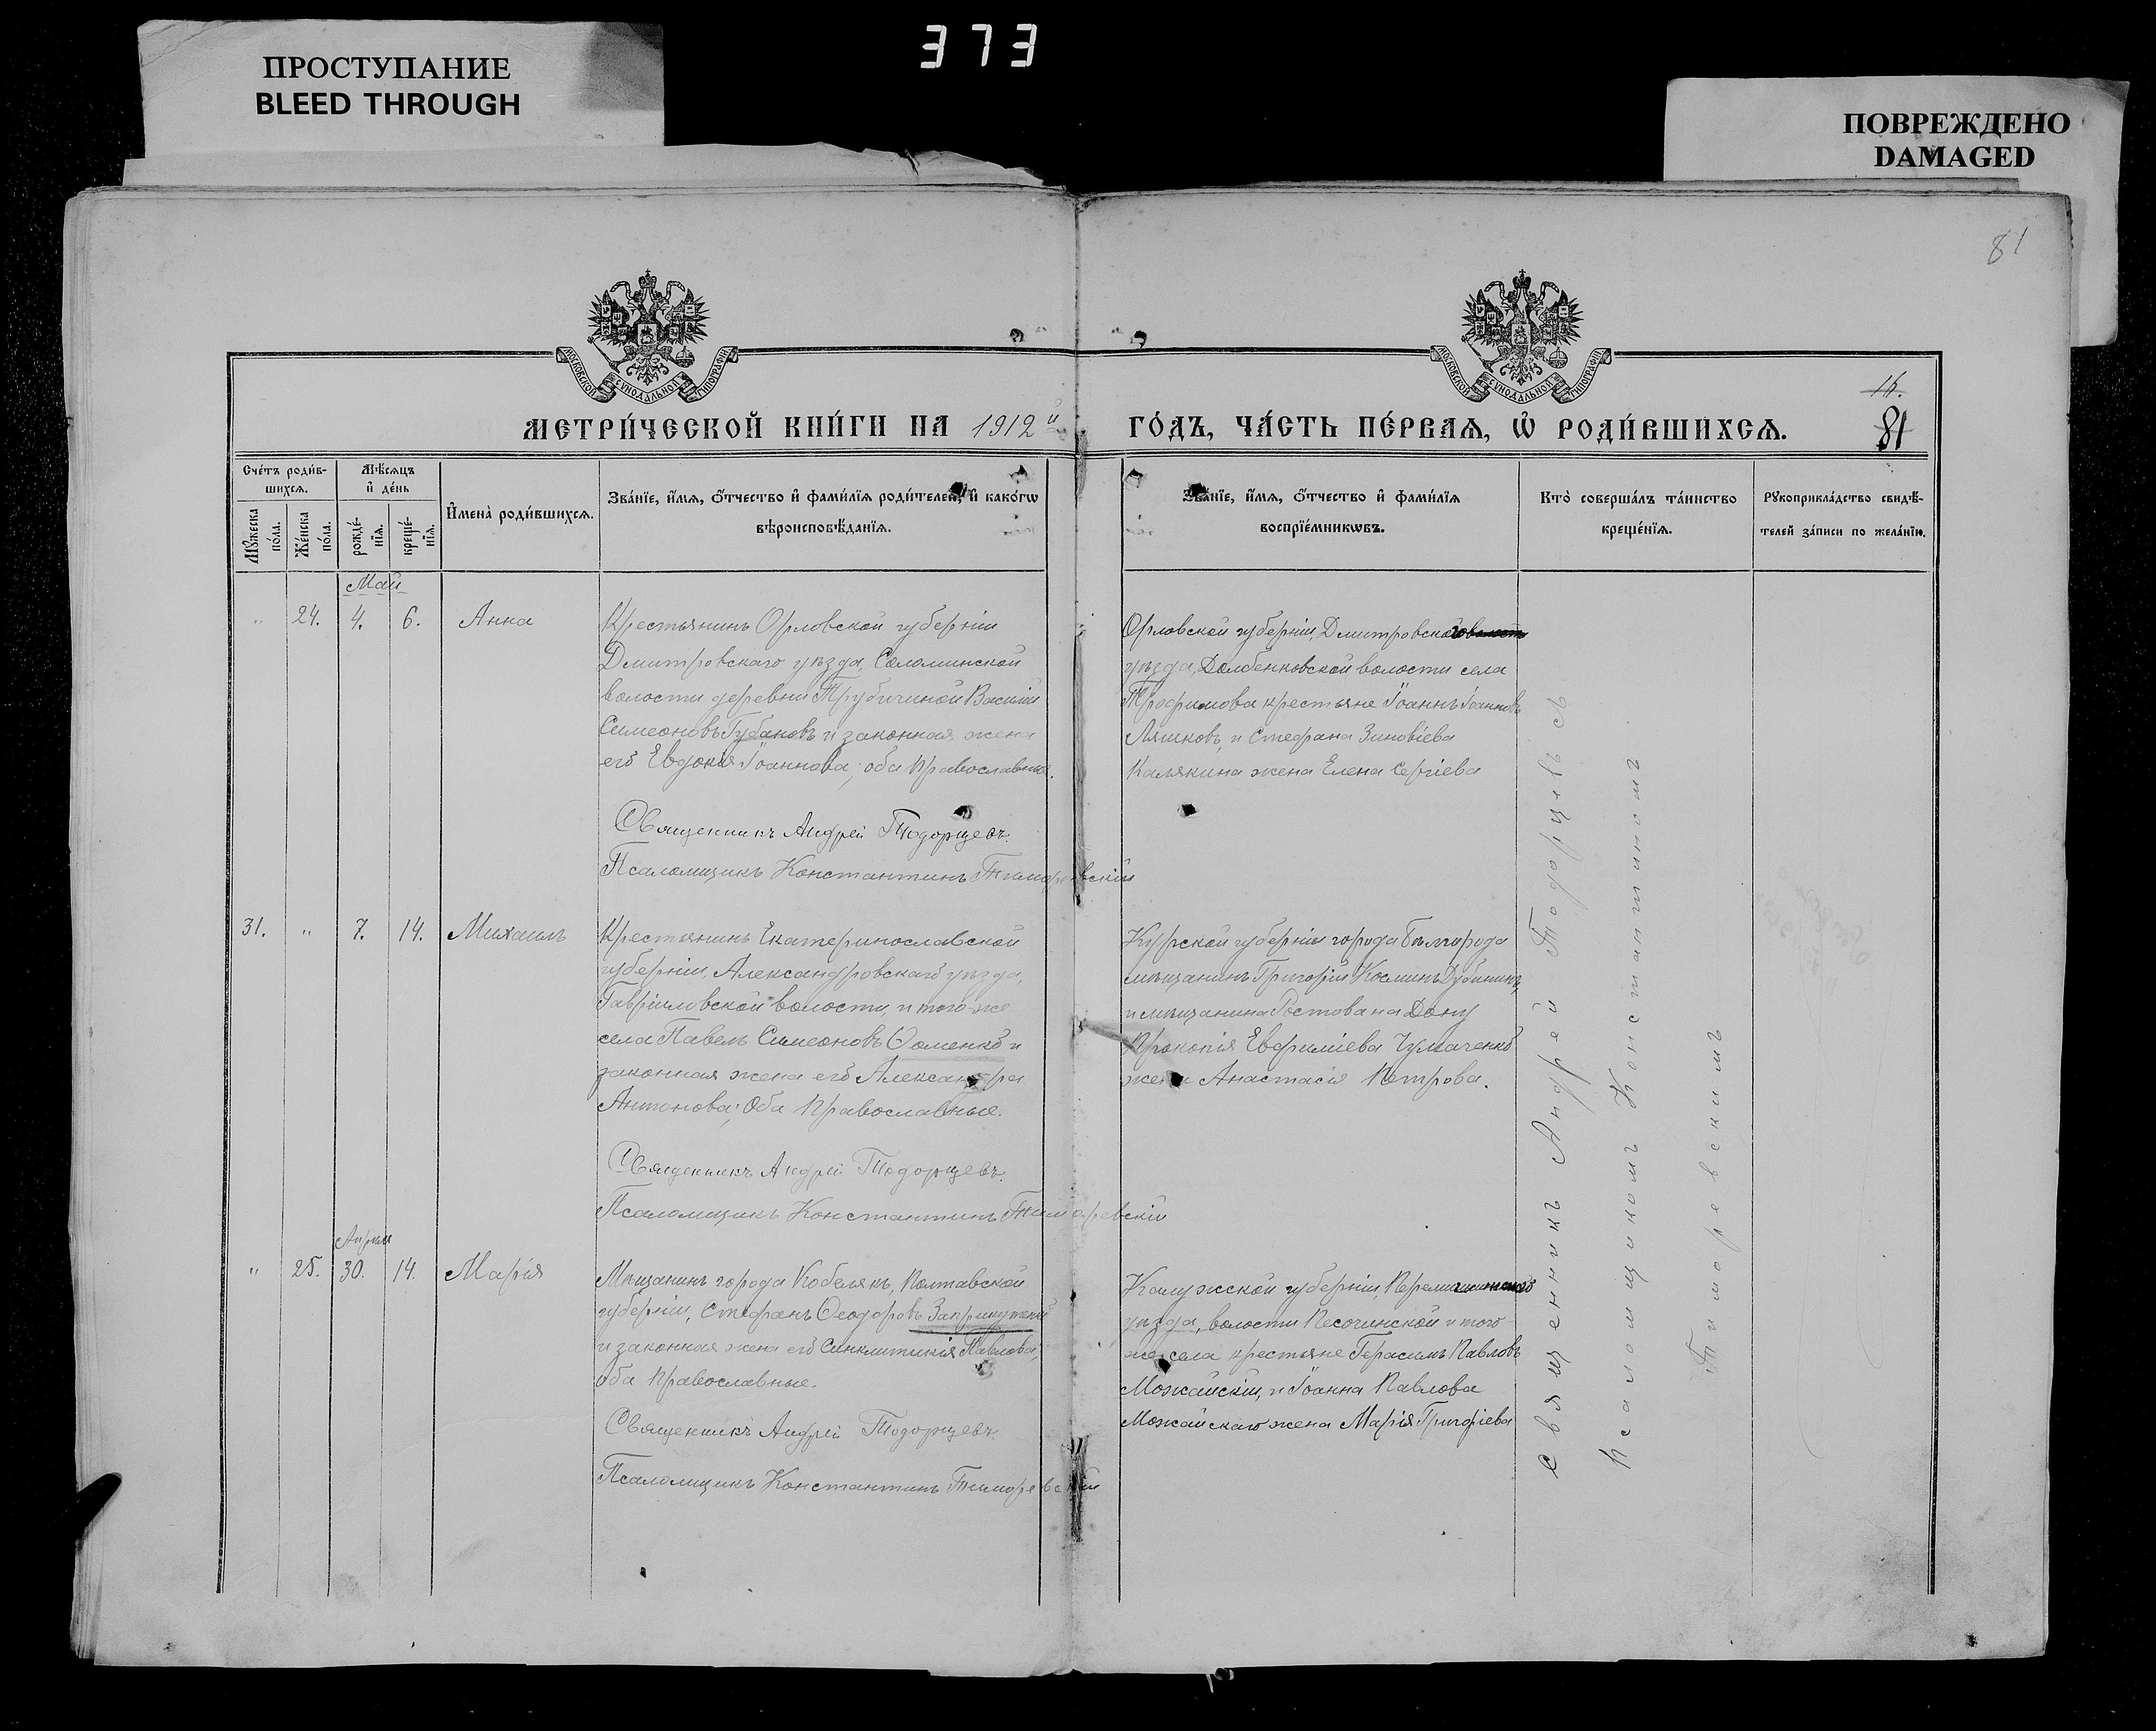 373
ПРОСТУПАНИЕ
BLEED THROUGH
ПОВРЕЖДЕНО
DAMAGED
81
МОСКОВСКОЙ СѴНОДАЛЬНОЙ ТИПОГРАФІИ
МОСКОВСКОЙ СѴНОДАЛЬНОЙ ТИПОГРАФІИ
16.
81
МЕТРИ́ЧЕСКОЙ КНИ́ГИ НА 1912й
ГО́ДЪ, ЧА́СТЬ ПЕ́РВАѦ, Ѡ҆ РОДИ́ВШИХСѦ.
Сче́тъ роди́в-
шихсѧ.
Мꙋ́жеска по́ла.
Же́нска по́ла.
Мѣ́сѧцъ
и҆ де́нь
рожде́-
нїѧ.
креще́-
нїѧ.
И҆мена̀ роди́вшихсѧ.
Зва́нїе, и҆́мѧ, ѻ҆́тчество и҆ фами́лїѧ роди́телей, и҆ како́гѡ
вѣроисповѣ́данїѧ.
Зва́нїе, и҆́мѧ, ѻ҆́тчество и҆ фами́лїѧ
воспрїе́мникѡвъ.
Кто̀ соверша́лъ та́инство
креще́нїѧ.
Рꙋкоприкла́дство свидѣ́-
телей за́писи по жела́нїю.
Май
" 24. 4. 6. Анна
Крестьянинъ Орловской губерніи
Дмитровскаго уѣзда, Соломинской
волости деревни Трубичиной Василій
Симеоновъ Губановъ и законная жена
его Евдокія Іоаннова; оба православные.
Священникъ Андрей Тодорцевъ.
Псаломщикъ Константинъ Тиморевскій
Орловской губерніи, Дмитровскаго
уѣзда, Долбенковской волости села
Трофимова крестьяне Іоаннъ Іоанновъ
Ляшковъ, и Стефана Зиновіева
Калякина жена Елена Сергіева
31. " 7. 14. Михаилъ
Крестьянинъ Екатеринославской
губерніи, Александровскаго уѣзда,
Гавріиловской волости, и того-же
села Павелъ Симеоновъ Ѳоменко и
законная жена его Александра
Антонова; Оба православные.
Священникъ Андрей Тодорцевъ.
Псаломщикъ Константинъ Тиморевскій
Курской губерніи города Бѣлгорода
мѣщанинъ Григорій Косминъ Дубининъ,
и мѣщанина Ростова на Дону
Прокопія Евфиміева Чумаченко
жена Анастасія Петрова.
Апрѣля
" 25. 30. 14. Марія
Мѣщанинъ города Кобелякъ, Полтавской
губерніи, Стефанъ Ѳеодоровъ
и законная жена его Синклитикія Павлова,
оба православные.
Священникъ Андрей Тодорцевъ.
Псаломщикъ Константинъ Тиморевскій
Калужской губерніи,
уѣзда, волости Песочинской и того-
же села крестьяне Герасимъ Павловъ
Можайскій, и Іоанна Павлова
Можайскаго жена Марія Григоріева
Священникъ Андрей Тодорцевъ съ
Псаломщикомъ Константиномъ
Тиморевскимъ